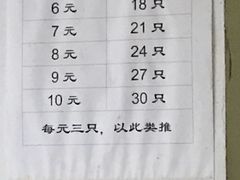 6 元 18 只
7 元 21 只
8 元 24 只
9 元 27 只
10 元 30 只
每元三只，以此类推